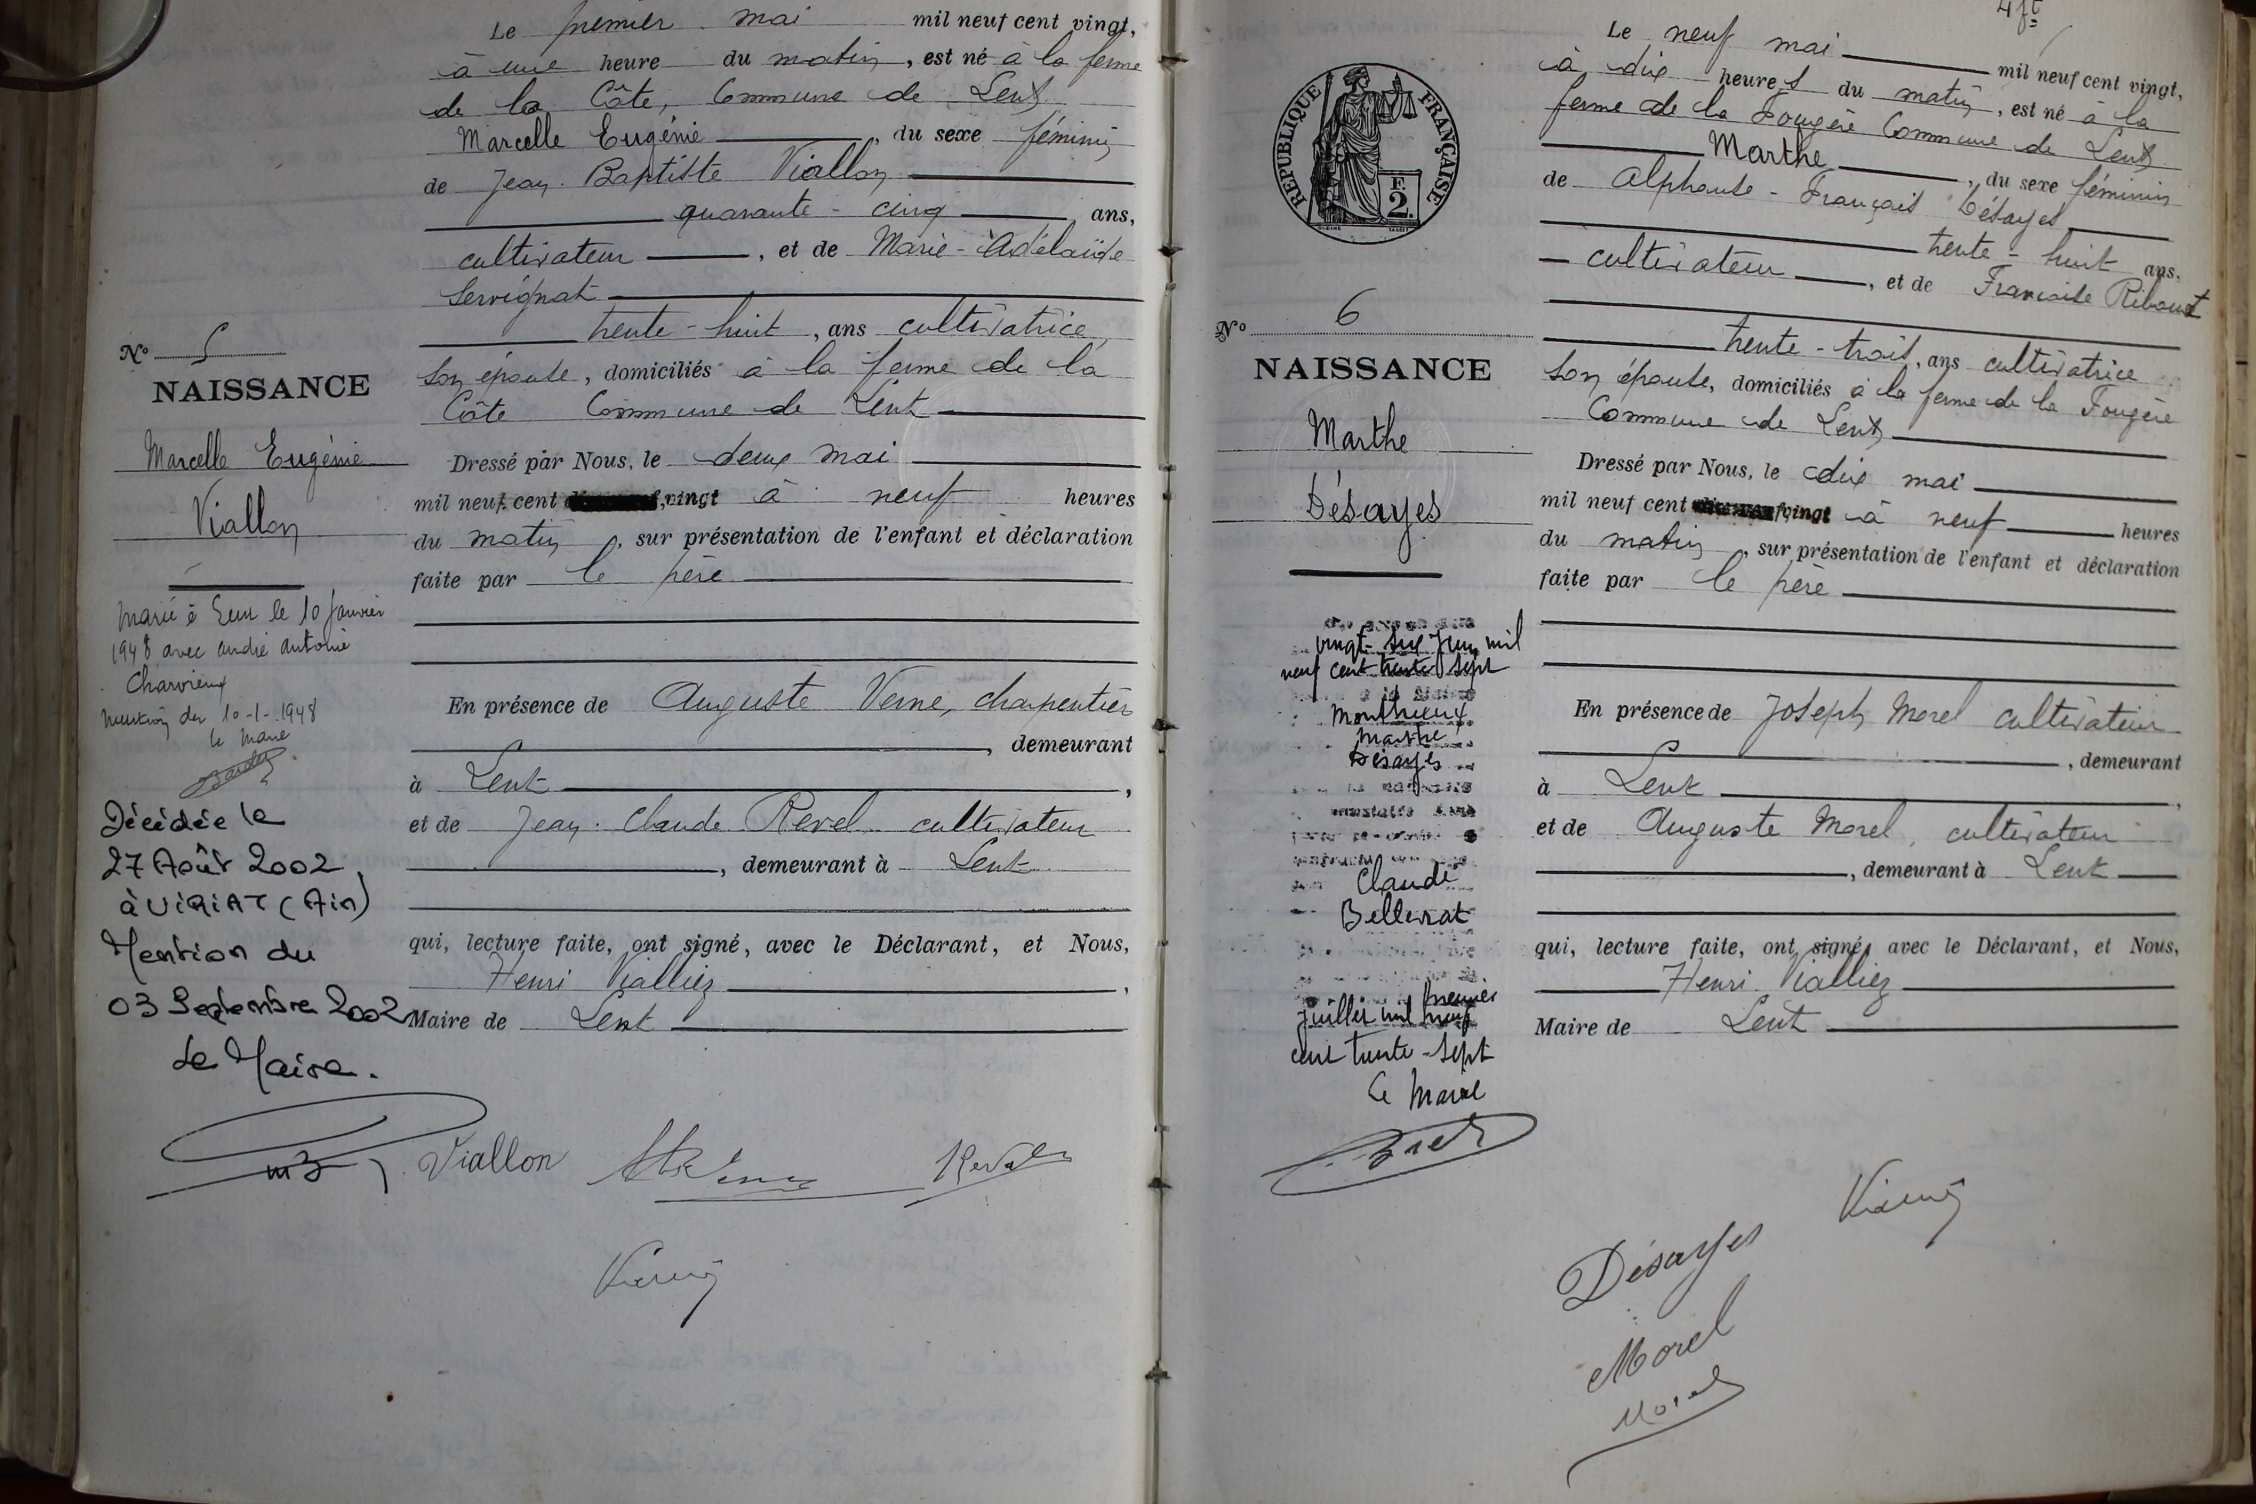 Le premier mai mil neuf cent vingt,
à une heure du matin, est né à la ferme
de la Côte, Commune de Lent
Marcelle Eugénie, du sexe féminin
de Jean-Baptiste Viallon
quarante-cinq ans,
cultivateur, et de Marie-Adélaïde
Servignat
trente-huit, ans cultivatrice,
son épouse, domiciliés à la ferme de la
Côte Commune de Lent
Dressé par Nous, le deux mai
mil neuf cent vingt à neuf heures
du matin, sur présentation de l'enfant et déclaration
faite par le père
En présence de Auguste Verne, charpentier
, demeurant
à Lent,
et de Jean-Claude Revel cultivateur
, demeurant à Lent
qui, lecture faite, ont signé, avec le Déclarant, et Nous,
Henri Vialliez,
Maire de Lent
No 5
NAISSANCE
Marcelle Eugénie
Viallon
Marié à Lent le 10 Janvier
1948 avec andré antoine
Charvieux
Mention du 10-1-1948
le Maire
Décédée le
27 Août 2002
à VIRIAT (Ain)
Mention du
03 Septembre 2002
Le Maire.
Viallon
Revel
4 ft
Le neuf mai mil neuf cent vingt,
à dix heures du matin, est né à la
ferme de la Fougère Commune de Lent
Marthe, du sexe féminin
de Alphonse-Français Désayes
trente-huit ans,
cultivateur, et de Francoise Ribout
trente-trois, ans cultivatrice
son épouse, domiciliés à la ferme de la Fougère
Commune de Lent
Dressé par Nous, le dix mai
mil neuf cent vingt à neuf heures
du matin, sur présentation de l'enfant et déclaration
faite par le père
En présence de Joseph Morel cultivateur
, demeurant
à Lent,
et de Auguste Morel, cultivateur
, demeurant à Lent
qui, lecture faite, ont signé, avec le Déclarant, et Nous,
Henri Vialliez
Maire de Lent
REPUBLIQUE FRANÇAISE
F.
2.
No 6
NAISSANCE
Marthe
Désayes
vingt-six Juin mil
neuf cent trente sept
Monthieux
Marthe
Désayes
Claude
Bellevrat
premier
juillet mil neuf
cent trente-sept
Le Maire
Désayes
Morel
Morel